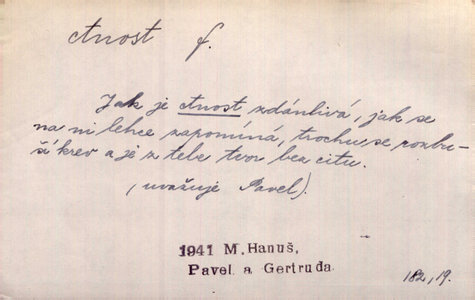 ctnost f.
Jak je ctnost zdánlivá, jak se
na ni lehce zapomíná, trochu se rozbu-
ší krev a je z tebe tvor bez citu.
(uvažuje Pavel).
1941 M. Hanuš,
Pavel a Gertruda.
182, 19.